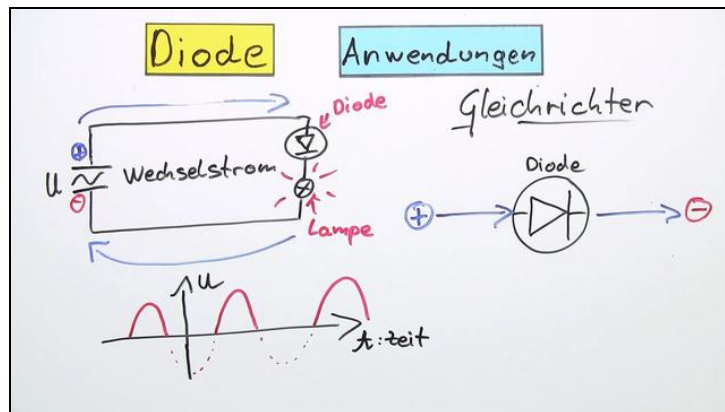 Diode
Anwendungen
Diode
Gleichrichter
+
U
Wechselstrom
-
Lampe
Diode
+
-
U
t: zeit